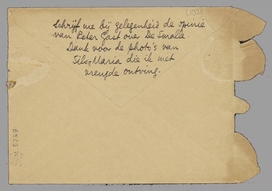 Schrijf me bij gelegenheid de opinie
van Peter Gast over De Smalle
Dank voor de photo's van
Sils-Maria die ik met
vreugde ontving.